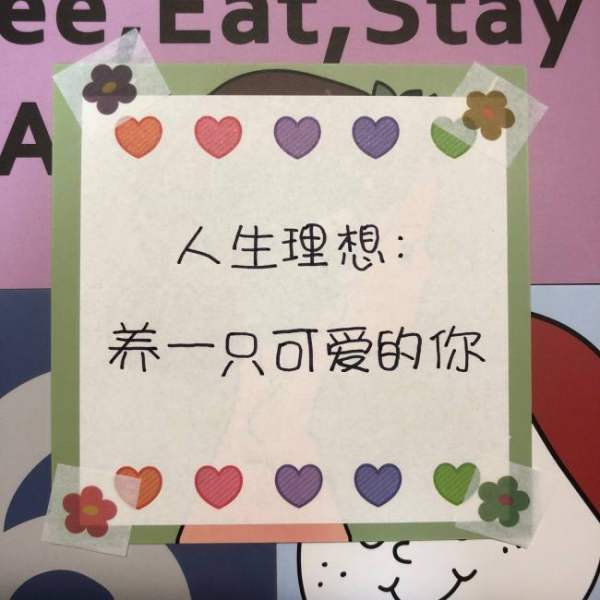 ee, Eat, Stay
A
人生理想:
养一只可爱的你